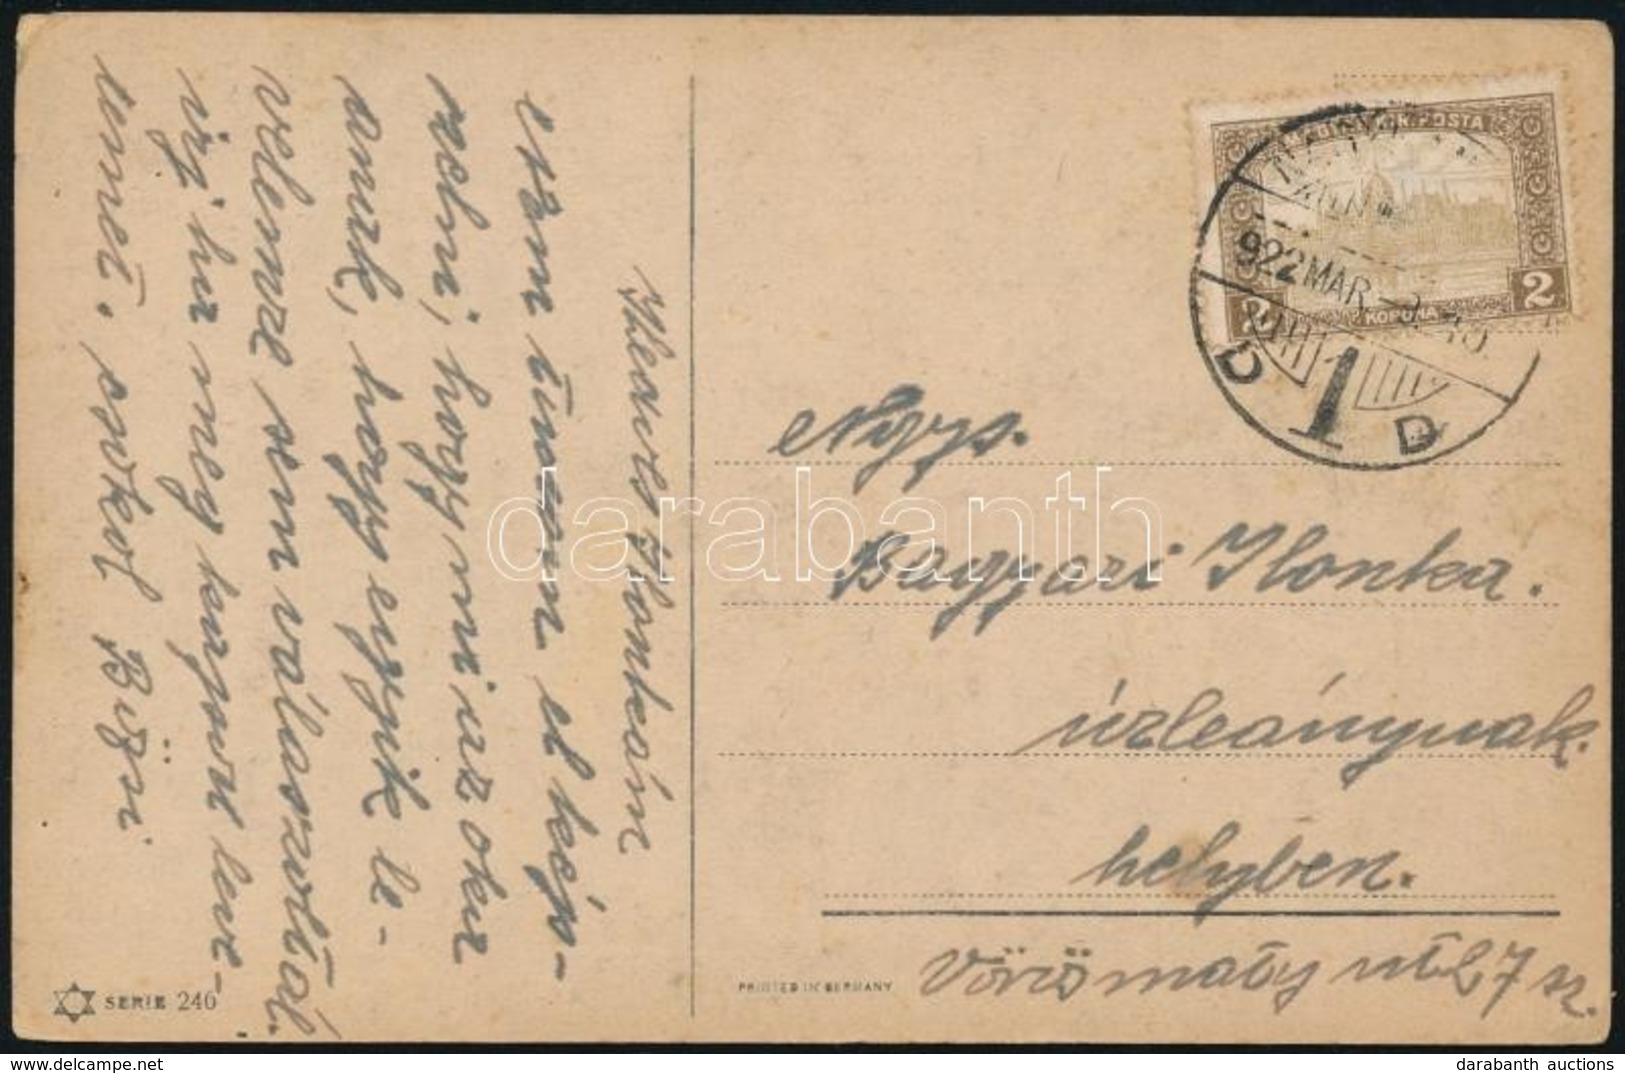 Kedves Ilonkám
el sem tudom el kép-
zelni, hogy mi az oka
annak, hogy egyik le-
velemre sem válaszoltál.
irj ha meg kapod leve-
lemet. sokol Bözsi
SERIE 240
PRINTED IN GERMANY
MAGYAR KIR. POSTA
2 KORONA 2
922 MAR
D 1 D
Ngys.
Bagyari Ilonka.
úrleánynak.
helyben.
Vörösmaty ut 27 sz.
darabanth
darabanth auctions